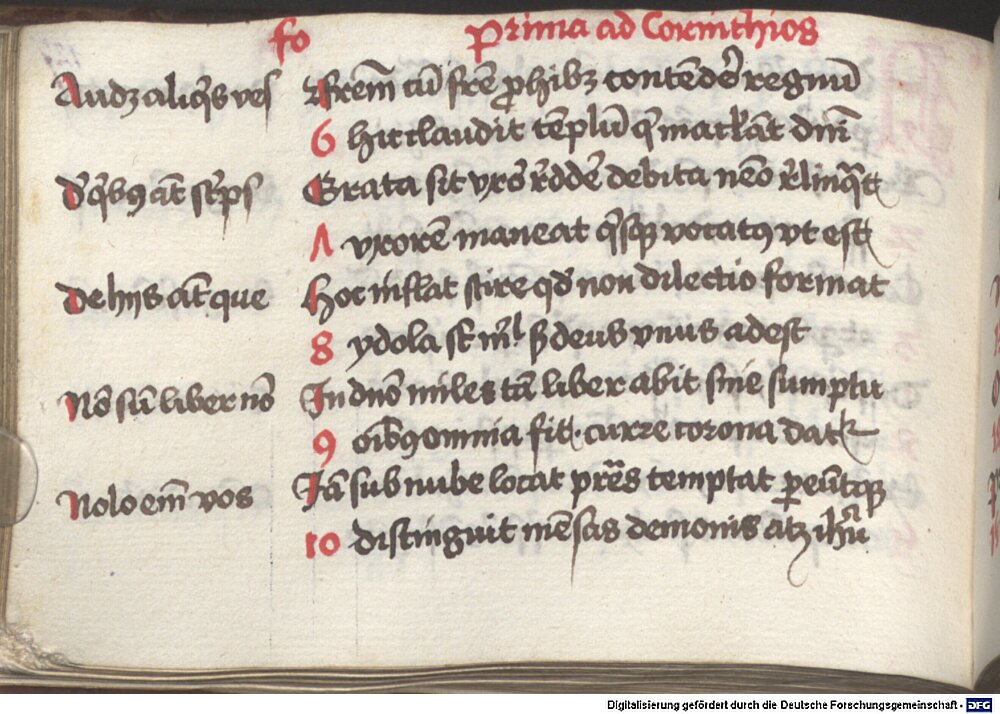 fo Prima ad Corinthios
Audz aliqs ves frem cū fre phibz contēdẽ regnū
6 hic claudit tēplū q mackāt dm̄
d qbꝰ āt sc̄ps Grata sit vxor r̄ddē debita nēo rlinqt
Λ vxorē maneat qsqꝫ vocatꝰ vt est
De hijs āt que Hoc inflat scire qd non dilectio format
8 ydola st nl' s deus vnus adest
Nō sū liber nō In dno miles tā liber abit sine sumptu
9 oibꝰ omnia fit. curre corona dat
Nolo em̄ vos Iā sub nube locat pres temptat pereūtqꝫ
10 distinguit mēsas demonis atz ihū
Digitalisierung gefördert durch die Deutsche Forschungsgemeinschaft - DFG